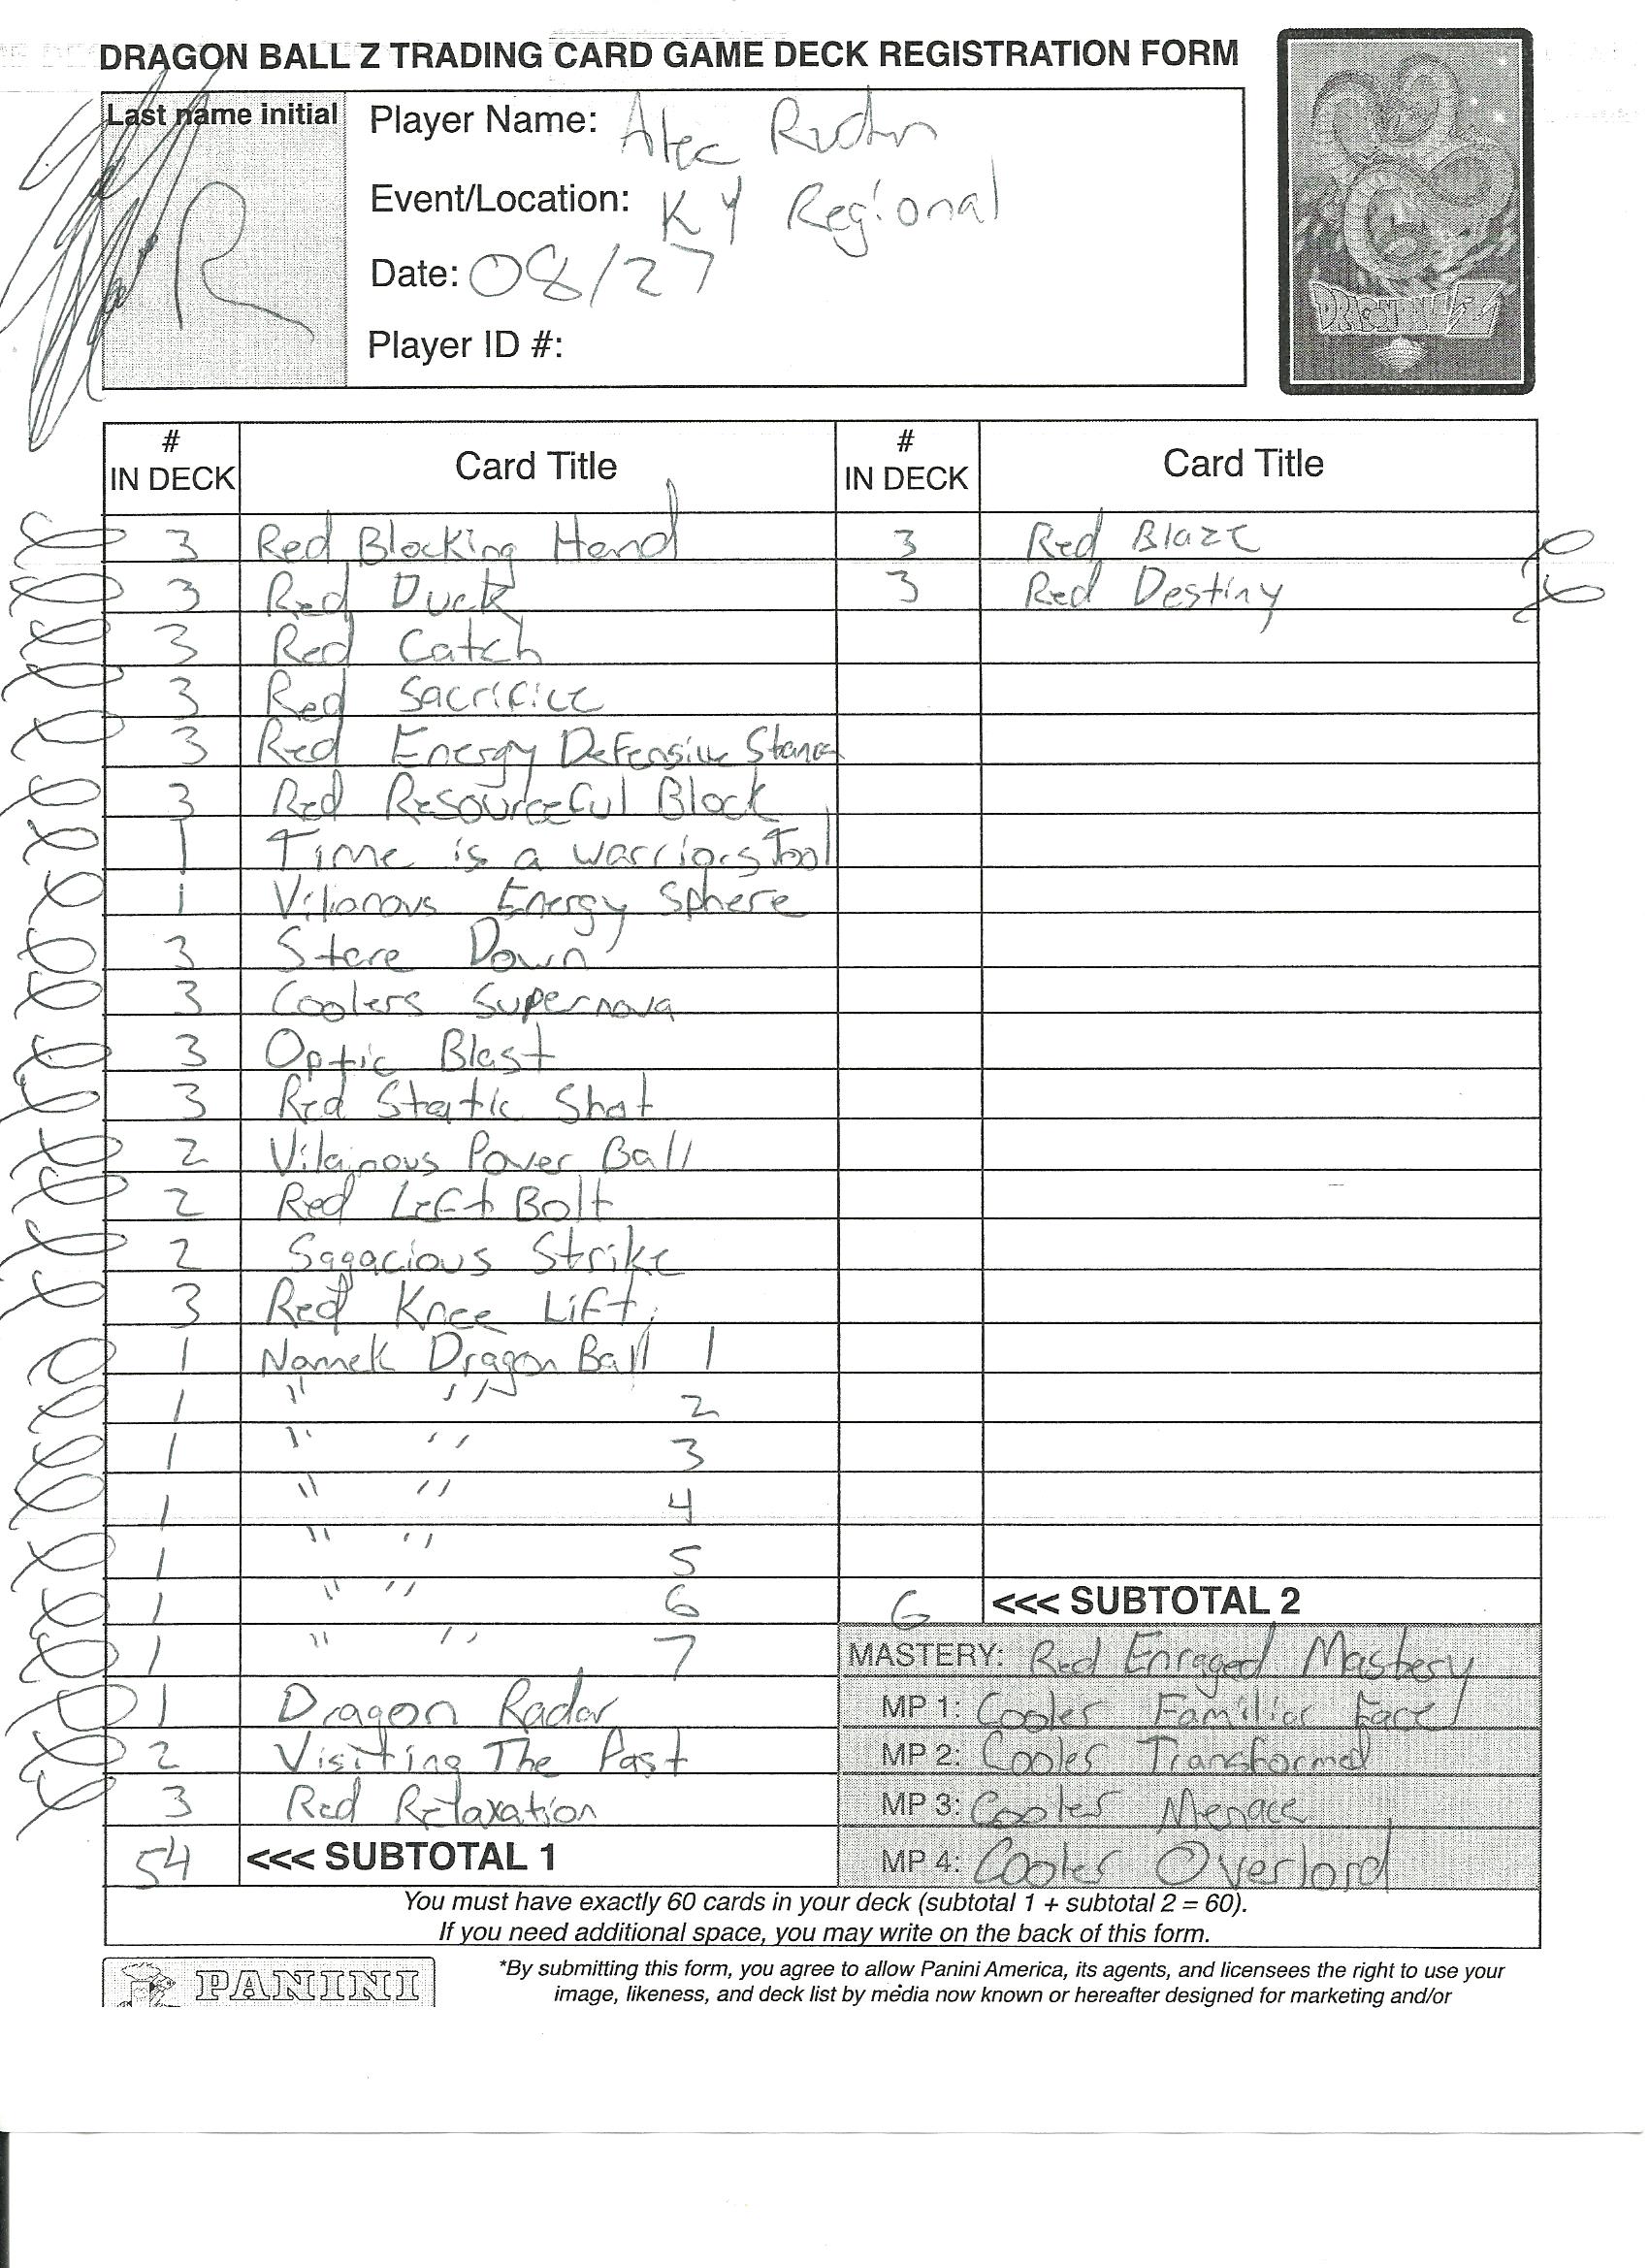 DRAGON BALL Z TRADING CARD GAME DECK REGISTRATION FORM
Last name initial
R
Player Name: Alec
Event/Location: KY Regional
Date: 08/27
Player ID #:
# IN DECK Card Title # IN DECK Card Title
3 Red Blocking Hand 3 Red Blaze
3 Red Duck 3 Red Destiny
3 Red Catch
3 Red Sacrifice
3 Red Energy Defensive Stance
3 Red Resourceful Block
1 Time is a warriors Tool
1 Vilianous Energy Sphere
3 Stare Down
3 Coolers Supernova
3 Optic Blast
3 Red Static Shot
2 Vilainous Power Ball
2 Red Left Bolt
2 Sagacious Strike
3 Red Knee Lift
1 Namek Dragon Ball 1
1 " " 2
1 " " 3
1 " " 4
1 " " 5
1 " " 6 6 <<< SUBTOTAL 2
1 " " 7 MASTERY: Red Enraged Mastery
1 Dragon Radar MP 1: Cooler Familiar Face
2 Visiting The Past MP 2: Cooler Transformed
3 Red Relaxation MP 3: Cooler Menace
54 <<< SUBTOTAL 1 MP 4: Cooler Overlord
You must have exactly 60 cards in your deck (subtotal 1 + subtotal 2 = 60).
If you need additional space, you may write on the back of this form.
PANINI
*By submitting this form, you agree to allow Panini America, its agents, and licensees the right to use your
image, likeness, and deck list by media now known or hereafter designed for marketing and/or
DRAGON BALL Z